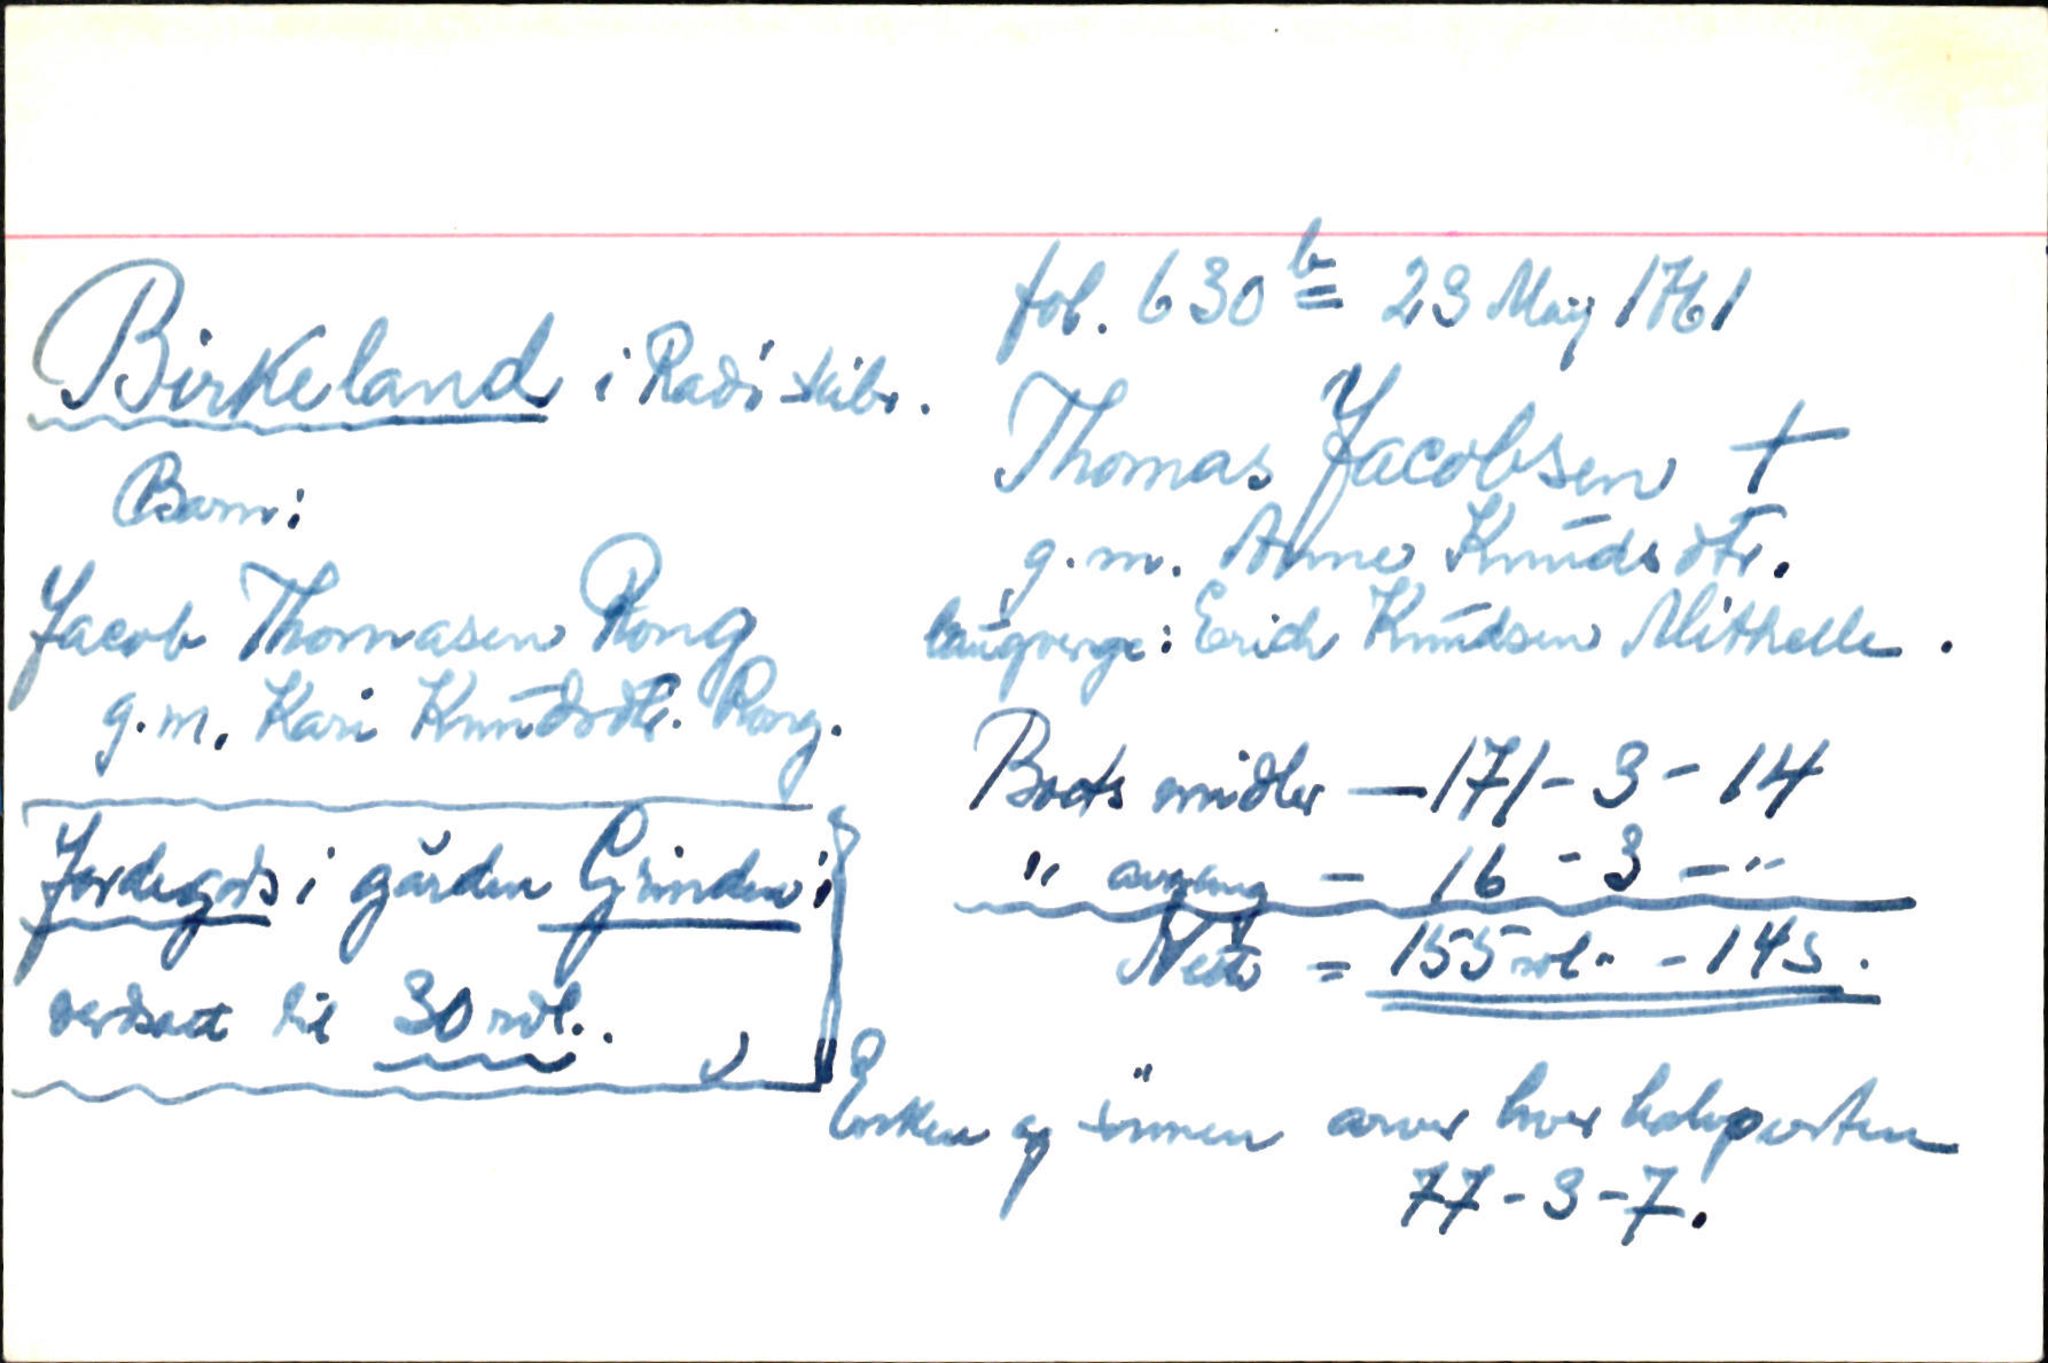 fol. 630 b 23 May 1761
Birkeland i Radö skibr.
Thomas Jacobsen †
g.m. Anne Knudsdtr.
laugverge: Erich Knudsen Mithelle.
Barn:
Jacob Thomasen Rong
g.m. Kari Knudsdtr. Rong.
Jordegods i gården Grinden i
verdsatt til 30 rdl.
Boets midler — 171 - 3 - 14
" avgang - 16 - 3 - "
Netto = 155 rdl " - 14 s.
Enken og sönnen arver hver halvparten
77 - 3 - 7.